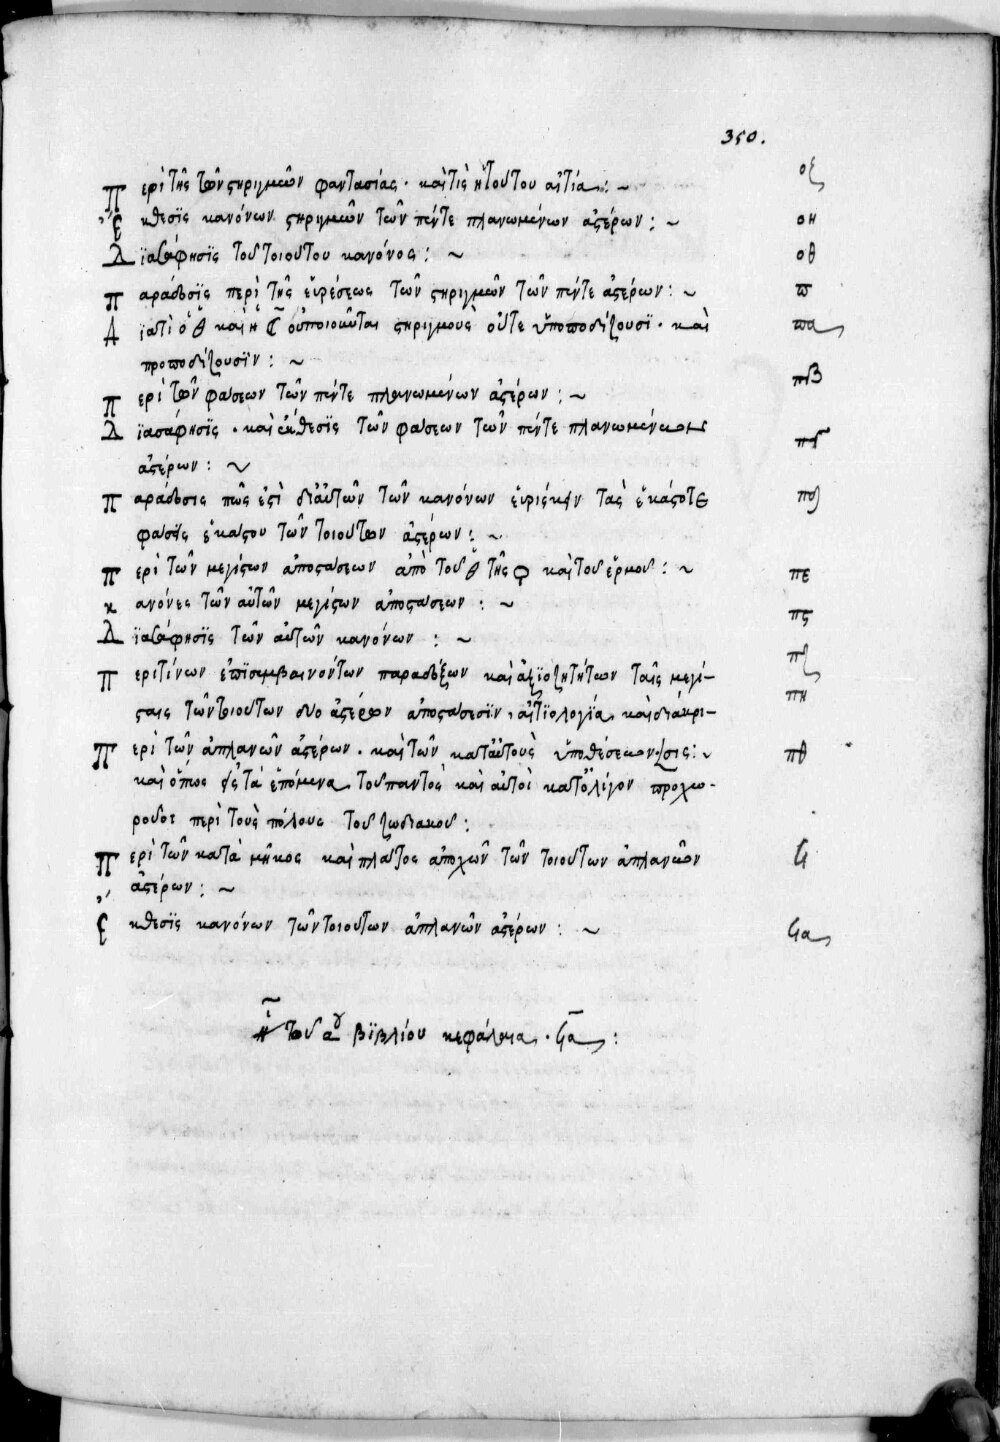 350.
Περὶ τῆς τῶν στηριγμῶν φαντασίας · καὶ τὶς ἡ τούτου αἰτία : ~ οζ
Ἔκθεσϊς κανόνων στηριγμῶν τῶν πέντε πλανωμένων ἀστέρων : ~ οη
Δϊασάφησϊς τοῦ τοιούτου κανόνος : ~ οθ
Παράδοσϊς περὶ τῆς εὑρέσεως τῶν στηριγμῶν τῶν πέντε ἀστέρων : ~ π
Δϊατὶ ὁ καὶ ἡ οὐ ποιοῦνται στηριγμοὺς οὔτε ὑποποδίζουσϊ · καὶ πα
προποδίζουσϊν : ~
Περὶ τῶν φάσεων τῶν πέντε πλανωμένων ἀστέρων : ~ πβ
Δϊασάφησϊς · καὶ ἔκθεσϊς τῶν φάσεων τῶν πέντε πλανωμένων πγ
ἀστέρων : ~
Παράδοσις πῶς ἐστὶ διὰ τῶν κανόνων εὑρίσκειν τὰς ἑκάστοτε πδ
φάσεις ἑκάστου τῶν τοιούτων ἀστέρων : ~
Περὶ τῶν μεγίστων ἀποστάσεων ἀπὸ τοῦ τῆς ♀ καὶ τοῦ ἑρμοῦ : ~ πε
Κανόνες τῶν αὐτῶν μεγίστων ἀποστάσεων : ~ πς
Δϊασάφησϊς τῶν αὐτῶν κανόνων : ~ πζ
Περὶ τίνων ἐπϊσυμβαινόντων παραδόξων καὶ ἀξϊοζητήτων ταῖς μεγί– πη
σταις τῶν τοιούτων δύο ἀστέρων ἀποστάσεσϊν, αἰτϊολογία καὶ διάκρι–
Περὶ τῶν ἀπλανῶν ἀστέρων · καὶ τῶν κατ' αὐτοὺς ὑποθέσεων · σις : ~ πθ
καὶ ὅπως εἰς τὰ ἑπόμενα τοῦ παντὸς καὶ αὐτοὶ κατ' ὀλίγον προχω–
ροῦσι περὶ τοὺς πόλους τοῦ ζωδιακοῦ :
Περὶ τῶν κατὰ μῆκος καὶ πλάτος ἀποχῶν τῶν τοιούτων ἀπλανῶν Ϟ
ἀστέρων : ~
Ἔκθεσϊς κανόνων τῶν τοιούτων ἀπλανῶν ἀστέρων : ~ Ϟα
τοῦ αου βϊβλίου κεφάλαια · Ϟα :